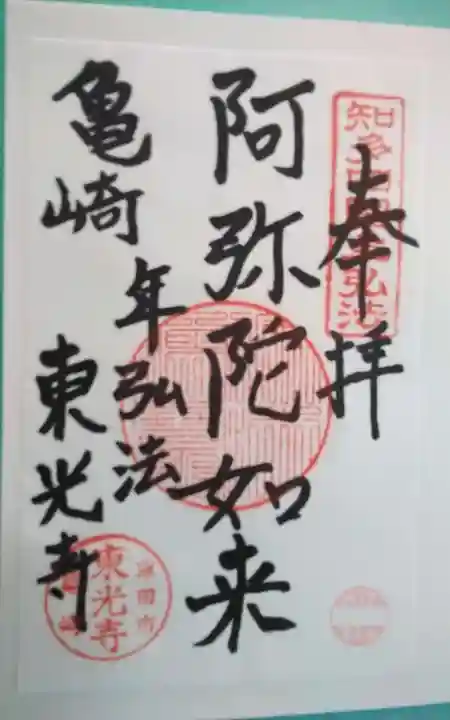 知多
弘法
奉拝
阿弥陀如来
年弘法
亀崎
東光寺
半田市
東光寺